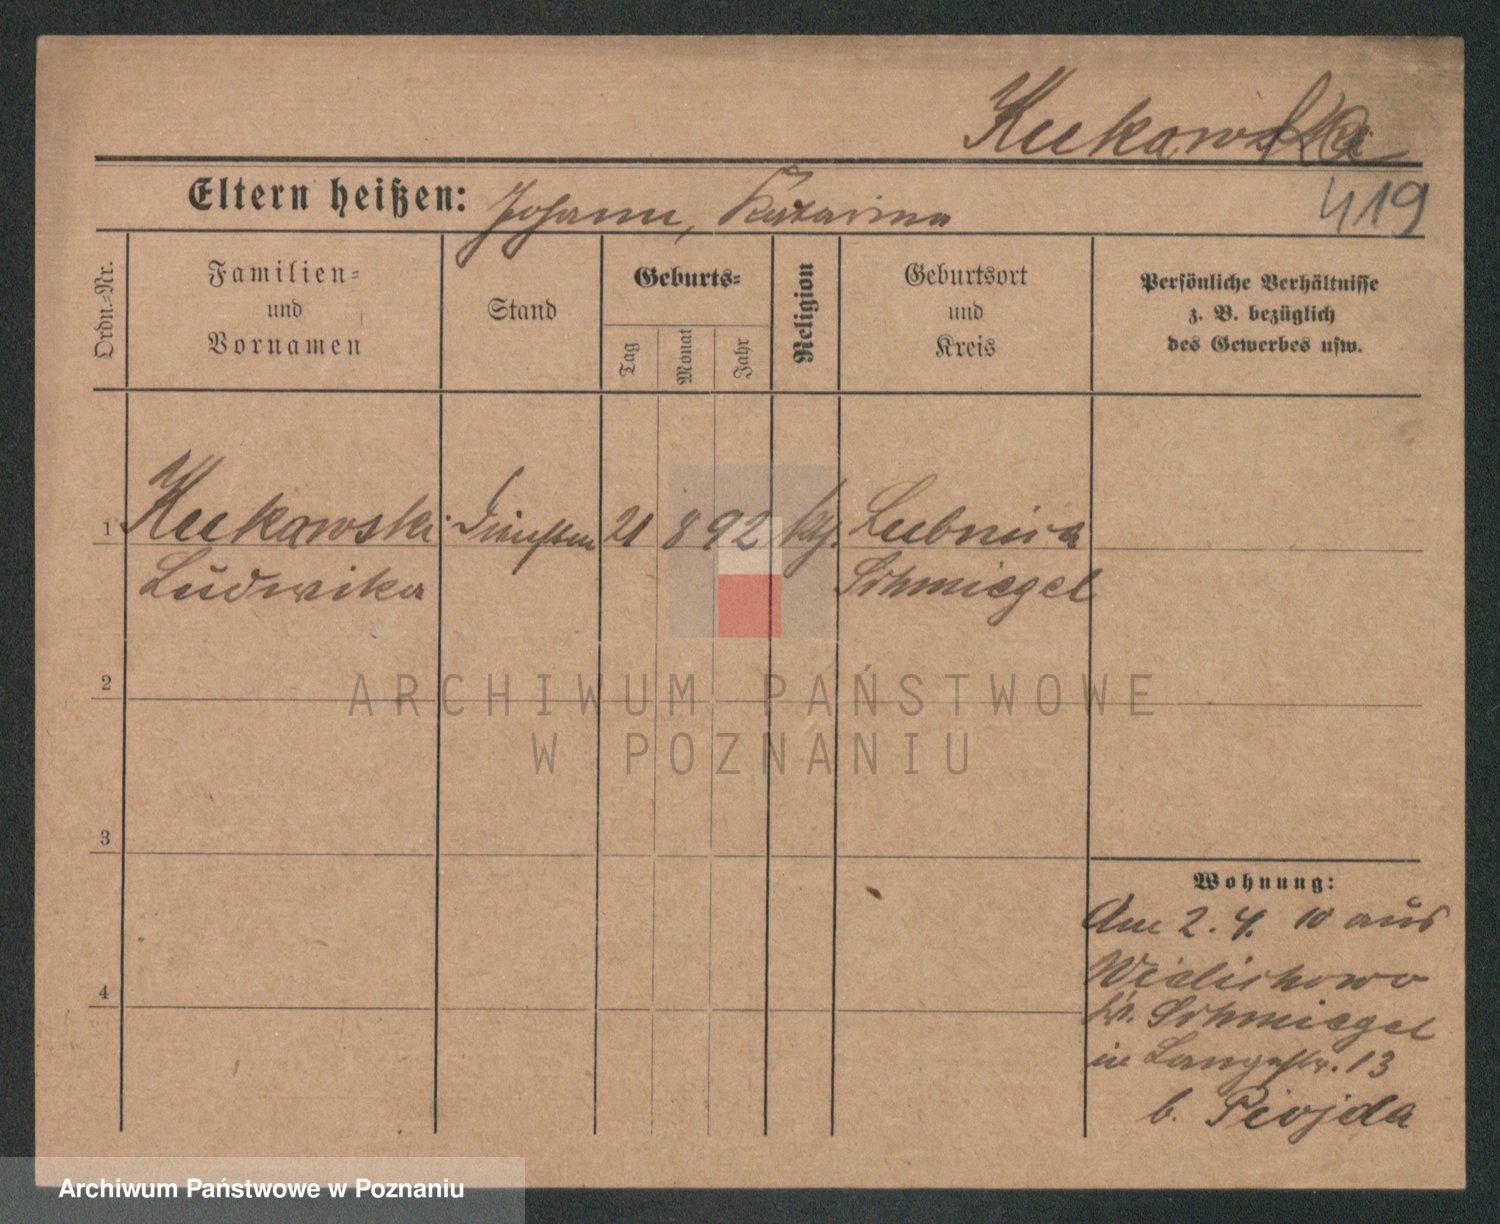 Kukowska
419
Eltern heißen: Johann, Katarina
Ordn.=Nr.
Familien=
und
Vornamen
Stand
Geburts=
Tag
Monat
Jahr
Religion
Geburtsort
und
Kreis
Persönliche Verhältnisse
z. B. bezüglich
des Gewerbes usw.
1 Kukowski 21 8 92 ktg. Lubnica
Ludwika Schmiegel
2
3
4
Wohnung:
Am 2. 4. 10 aus
Wielichowo
Kr. Schmiegel
in Langestr. 13
b.
ARCHIWUM PAŃSTWOWE
W POZNANIU
Archiwum Państwowe w Poznaniu